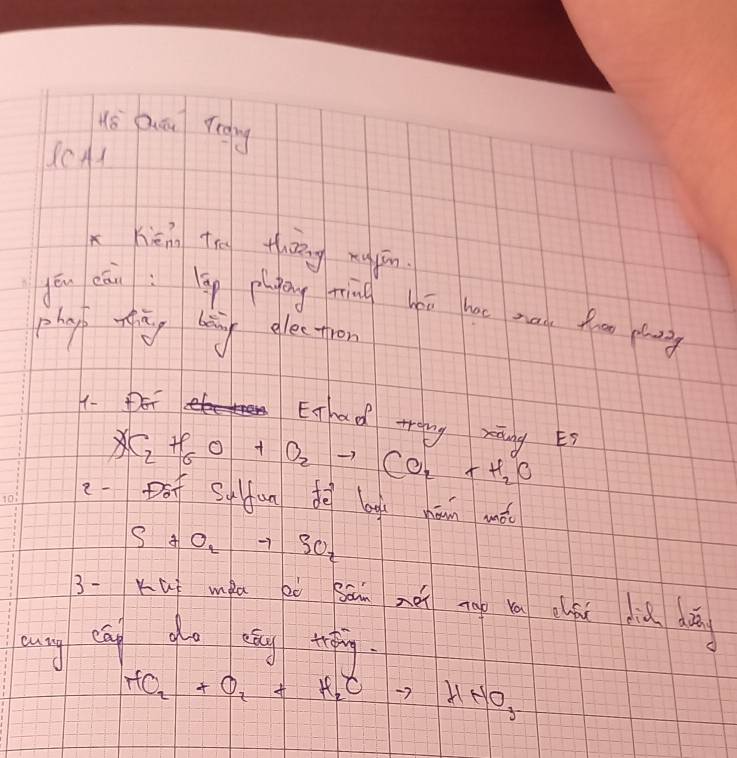 Hồ Quân Trọng
10A1
* Kiểm tra thường xuyên.
yêu cầu : lập phương trình hoá học sau theo phương
pháp thăng bằng electron
1- Đốt Ethanol trong xăng E5
C₂H₆O + O₂ → CO₂ + H₂O
2- Đốt Sulfur để loại nấm mốc
S + O₂ → SO₂
3- Khi mưa có Sấm sét tạo ra chất dinh dưỡng
cung cấp cho cây trồng.
NO₂ + O₂ + H₂O → HNO₃